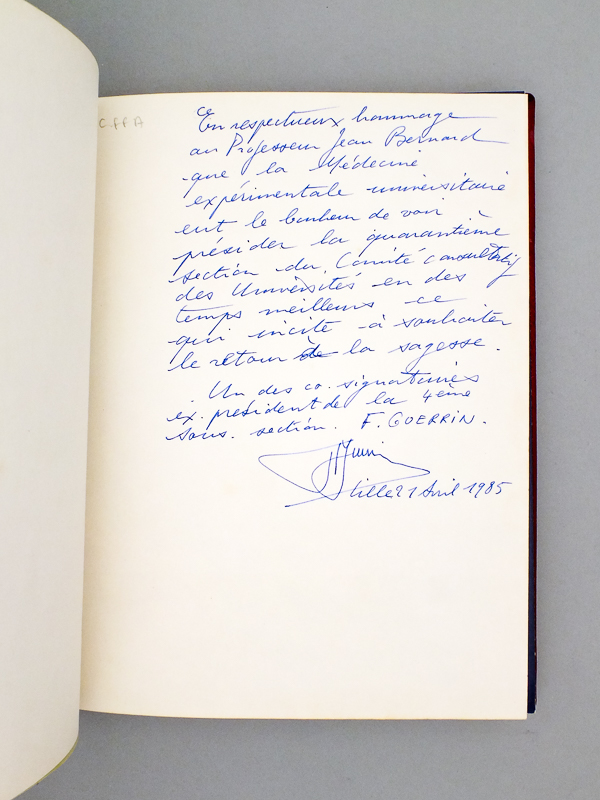 CFFA
En respectueux hommage
au Professeur Jean Bernard
que la Médecine
expérimentale universitaire
eut le bonheur de voir
présider la quarantième
section du Comité Consultatif
des Universités en des
temps meilleurs ce
qui incite à souhaiter
le retour à la sagesse.
Un des co. signataires
ex. président de la 4ème
sous. section. F. GUERRIN.
Lille 21 Avril 1985